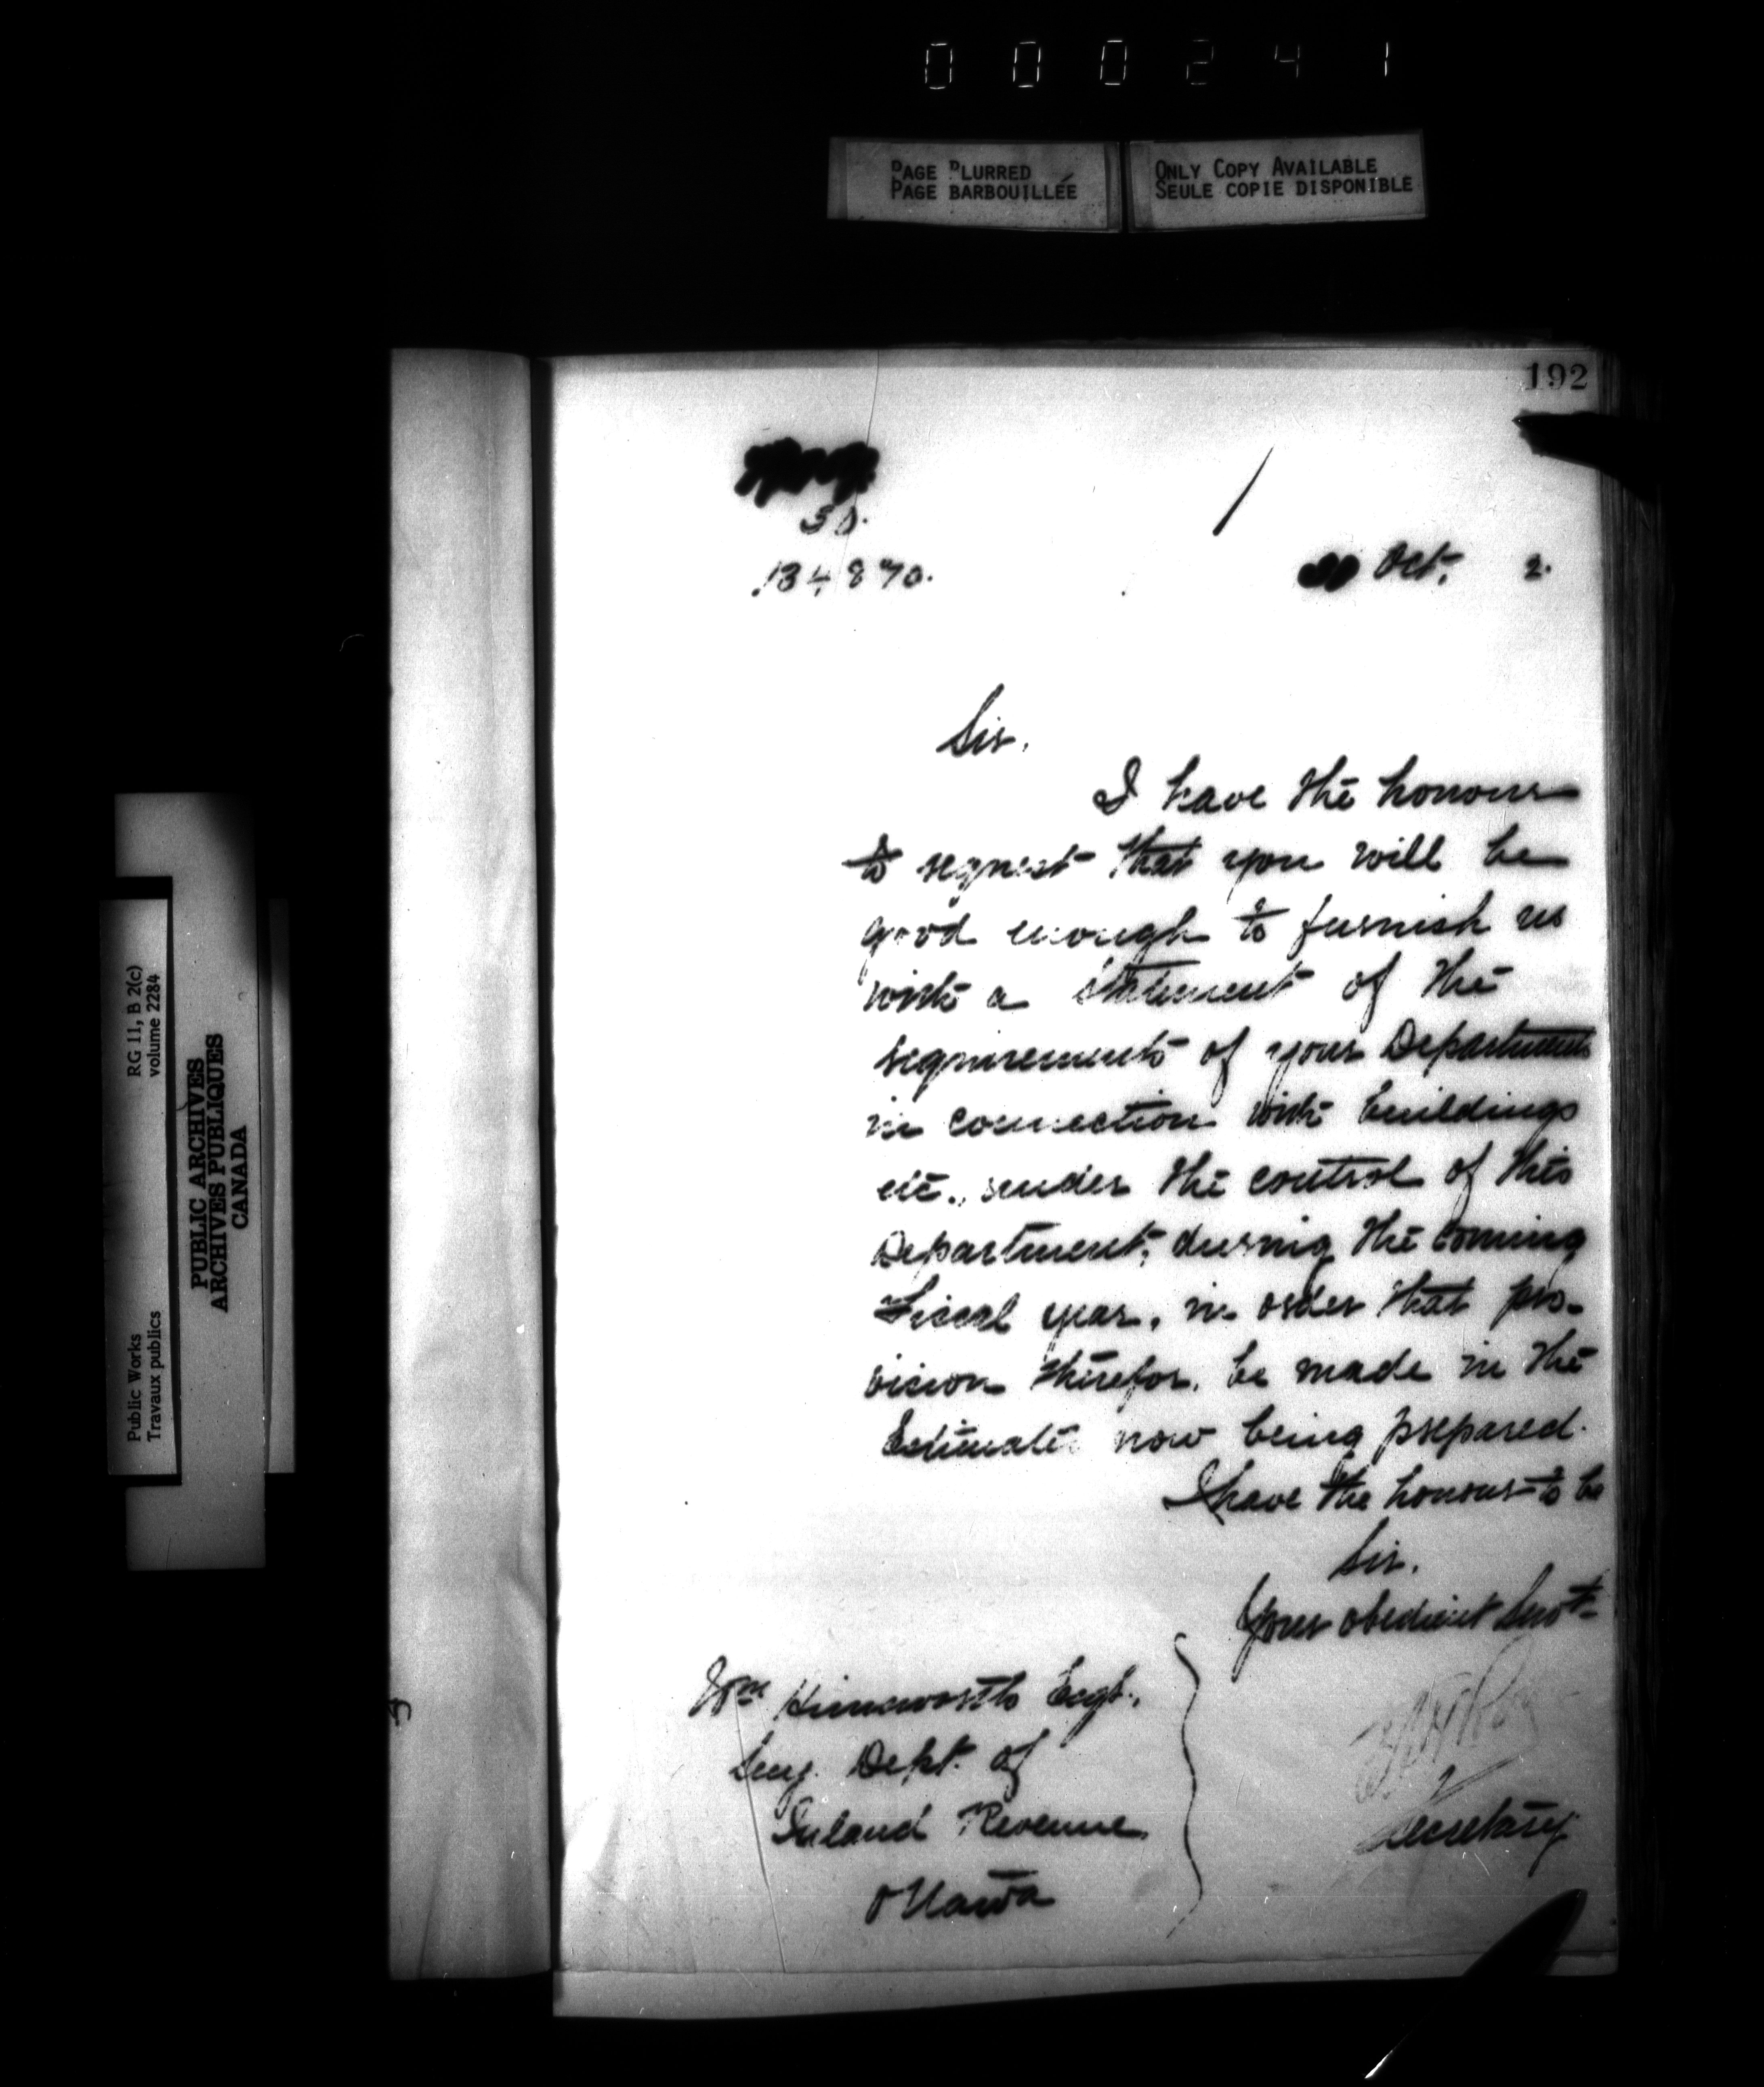 000241
PAGE BLURRED
PAGE BARBOUILLÉE
ONLY COPY AVAILABLE
SEULE COPIE DISPONIBLE
192
30.
134870.
Oct. 2.
Sir,
I have the honour
to request that you will be
good enough to furnish us
with a statement of the
requirements of your Department
in connection with buildings
etc., under the control of this
Department, during the coming
Fiscal year, in order that pro-
vision therefor, be made in the
Estimates now being prepared.
I have the honour to be
Sir,
Your obedient Servt
Secretary
Wm Himsworth Esqr.,
Secy. Dept. of
Inland Revenue
Ottawa
Public Works
Travaux publics
RG 11, B 2(c)
volume 2284
PUBLIC ARCHIVES
ARCHIVES PUBLIQUES
CANADA